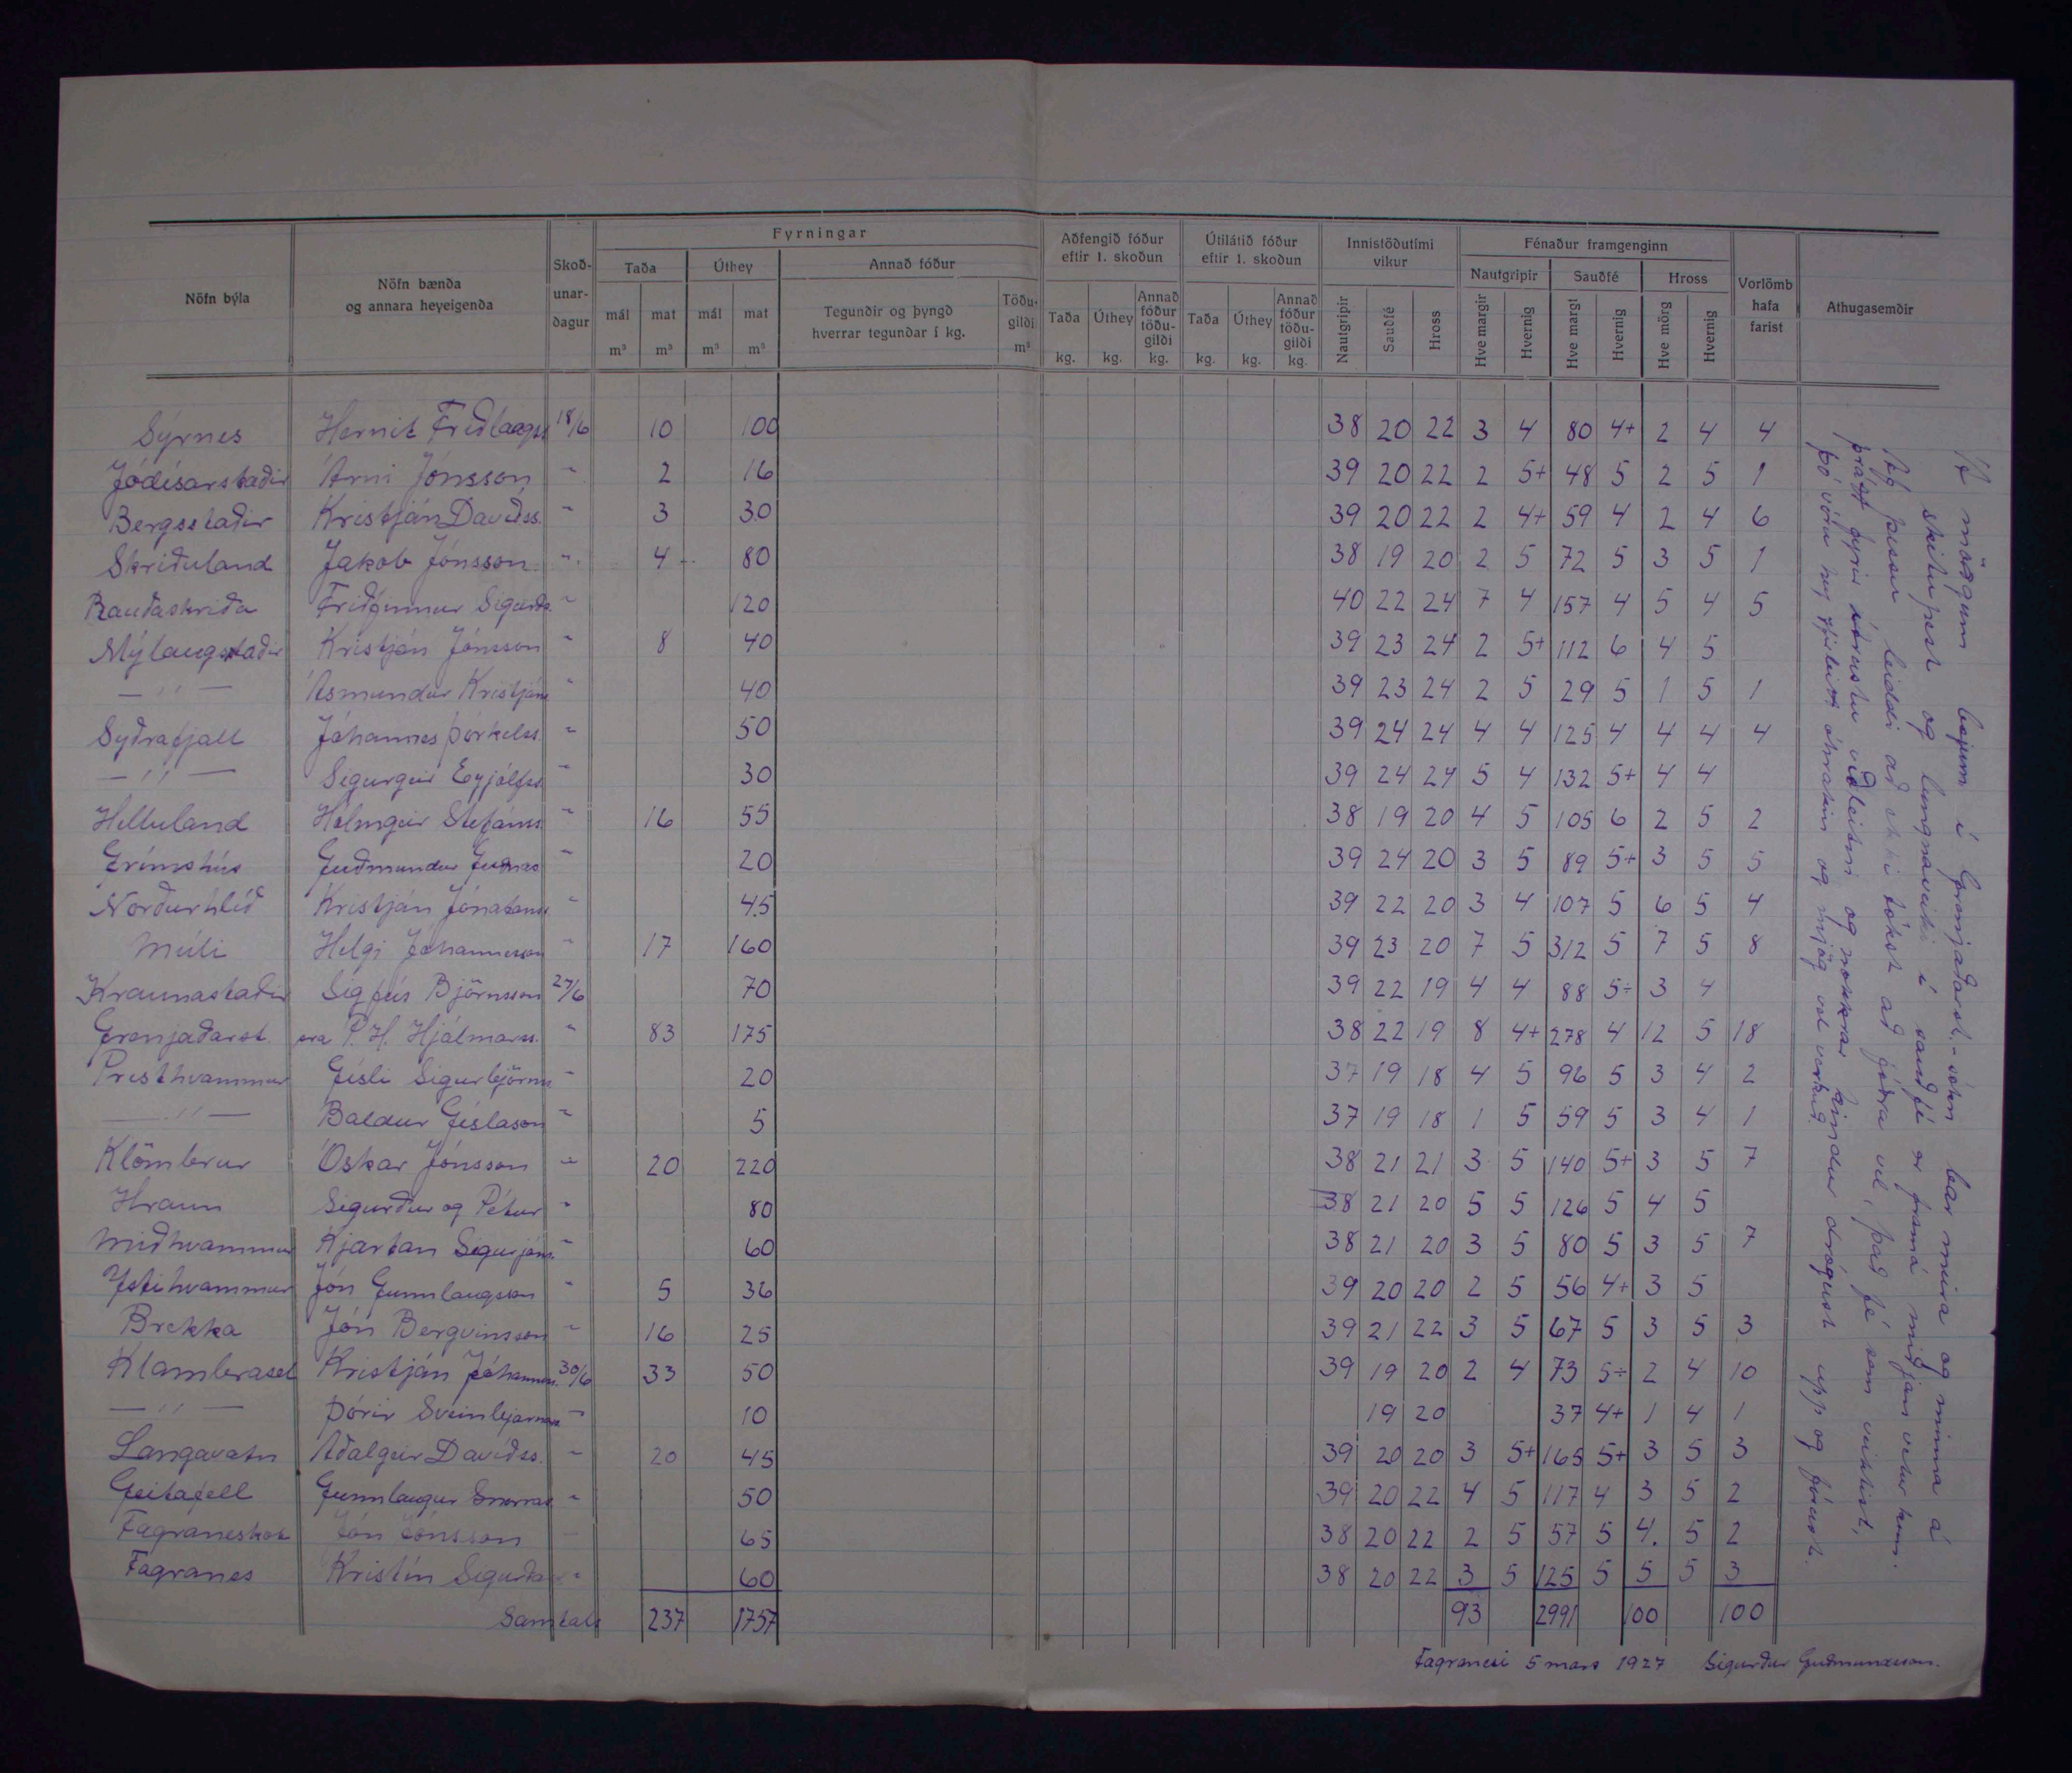 Fyrningar
Aðfengið fóður eftir 1. skoðun
Útilátið fóður eftir 1. skoðun
Innistöðutími vikur
Fénaður framgenginn
Nöfn býla
Nöfn bænda og annara heyeigenda
Skoð-unar-dagur
Taða
Úthey
Annað fóður
Nautgripir
Sauðfé
Hross
Vorlömb hafa farist
Athugasemdir
mál m³
mat m³
mál m³
mat m³
Tegundir og þyngd hverrar tegundar í kg.
Töðu-gildi m³
Taða kg.
Úthey kg.
Annað fóður töðu-gildi kg.
Taða kg.
Úthey kg.
Annað fóður töðu-gildi kg.
Nautgripir
Sauðfé
Hross
Hve margir
Hvernig
Hve margt
Hvernig
Hve mörg
Hvernig
Sýrnes Hernit Friðlaugss 18/6 10 100 38 20 22 3 4 80 4+ 2 4 4
Jódísarstaðir Árni Jónsson " 2 16 39 20 22 2 5+ 48 5 2 5 1
Bergsstaðir Kristján Davíðss. " 3 30 39 20 22 2 4+ 59 4 2 4 6
Skriðuland Jakob Jónsson " 4 80 38 19 20 2 5 72 5 3 5 1
Rauðaskriða Friðfinnur Sigurðs. " 120 40 22 24 7 4 157 4 5 4 5
Mýlaugstaðir Kristján Jónsson " 8 40 39 23 24 2 5+ 112 6 4 5
— " — Ásmundur Kristjáns " 40 39 23 24 2 5 29 5 1 5 1
Syðrafjall Jóhannes Þórkelss. " 50 39 24 24 4 4 125 4 4 4 4
— " — Sigurgeir Eyjólfss " 30 39 24 24 5 4 132 5+ 4 4
Helluland Hólmgeir Stefánss. " 16 55 38 19 20 4 5 105 6 2 5 2
Grímshús Guðmundur " 20 39 24 20 3 5 89 5+ 3 5 5
Norðurhlíð Kristján Jónatanss " 45 39 22 20 3 4 107 5 6 5 4
Múli Helgi Jóhannesson " 17 160 39 23 20 7 5 312 5 7 5 8
Kraunastaðir Sigfús Björnsson 27/6 70 39 22 19 4 4 88 5÷ 3 4
Grenjaðarst. sra P. H. Hjálmarss. " 83 175 38 22 19 8 4+ 278 4 12 5 18
Presthvammur Gísli Sigurbjörnss " 20 37 19 18 4 5 96 5 3 4 2
— " — Baldur Gíslason " 5 37 19 18 1 5 59 5 3 4 1
Klömbrur Óskar Jónsson " 20 220 38 21 21 3 5 140 5+ 3 5 7
Hraun Sigurður og Pétur " 80 38 21 20 5 5 126 5 4 5
Miðhvammur Kjartan Sigurjóns. " 60 38 21 20 3 5 80 5 3 5 7
Ystihvammur Jón Gunnlaugsson " 5 36 39 20 20 2 5 56 4+ 3 5
Brekka Jón Bergvinsson " 16 25 39 21 22 3 5 67 5 3 5 3
Klambrasel Kristján Jóhanness. 30/6 33 50 39 19 20 2 4 73 5÷ 2 4 10
— " — Þórir Sveinbjarnars " 10 19 20 37 4+ 1 4 1
Langavatn Aðalgeir Davíðss. " 20 45 39 20 20 3 5+ 165 5+ 3 5 3
Geitafell Gunnlaugur Snorras " 50 39 20 22 4 5 117 4 3 5 2
Fagraneskot Jón Jónsson 65 38 20 22 2 5 57 5 4. 5 2
Fagranes Kristín Sigurða " 60 38 20 22 3 5 125 5 5 5 3
Samtals 237 1757 93 2991 100 100
Á mörgum bæjum í Grenjaðarst.-sókn bar meira og minna á
skitupest og lungnaveiki í sauðfé er framá miðjan vetur kom.
Af þessu leiddi að ekki tókst að fóðra vel, það fé sem veiktist,
þrátt fyrir ítrustu viðleitni og nokkrar kindur drógust upp og fórust.
Þó vóru hey óhrakin og mjög vel verkuð.
Fagranesi 5 mars 1927 Sigurður Guðmundsson.